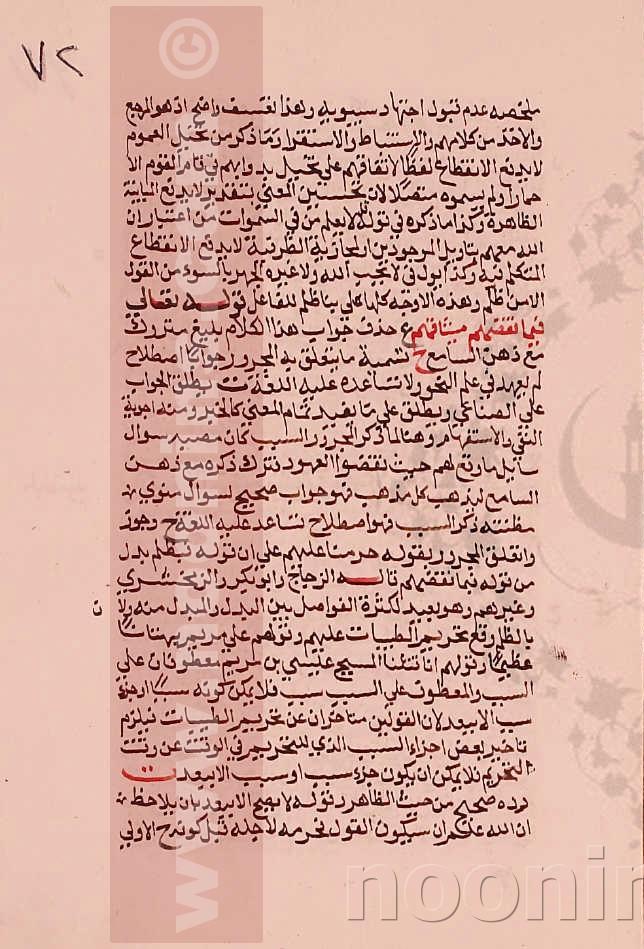 ٧٢
ملخصه عدم قبول اجتهاد سيبويه وهذا تعسف واضح اذ هو المرجع
والاخذ من كلامهم والاستنباط والاستقرار وما ذكر من تخيل العموم
لا يدفع الانقطاع لفظا لاتفاقهم على تخيل بدوابهم في قام القوم الا
حمارا ولم يسموه متصلا لان تحسين المعنى بتقدير لا يدفع المباينة
الظاهرة وكذا ما ذكره في قوله لا يعلم من في السموات من اعتبار ان
الله معهم بتاويل الموجودين المجازية الظرفية لا يدفع الانقطاع
المتكلم فيه وكذا قول في لا يحب الله ولا غيره الجهر بالسوء من القول
الا من ظلم وهذه الاوجه كلها على بنا ظلم للفاعل قوله تعالى
فبما نقضهم ميثاقهم ع حذف جواب هذا الكلام بليغ متروك
مع ذهن السامع ح تسمية ما يتعلق به المجرور جوابا اصطلاح
لم يعهد في علم النحو ولا تساعده عليه اللغة ت يطلق الجواب
على الصناعي ويطلق على ما يفيد تمام المعنى كالخبر ومنه اجوبة
النفي والاستفهام وهنا لما ذكر المجرور السبب كان مصب سوال
سائل ما وقع لهم حيث نقضوا العهود فترك ذكره مع ذهن
السامع ليذهب كل مذهب فهو جواب صحيح لسوال منوي
مظنته ذكر السبب فهو اصطلاح تساعد عليه اللغة ح وجوز
وا تعلق المجرور بقوله حرمنا عليهم على ان قوله فبظلم بدل
من قوله فبما نقضهم قاله الزجاج وابو بكر والزمخشري
وغيرهم وهو بعيد لكثرة الفواصل بين البدل والمبدل منه ولان
بالظا وقع تحريم الطيبات عليهم وقولهم على مريم بهتانا
عظيما وقولهم انا قتلنا المسيح عيسى بن مريم معطوفان على
السبب والمعطوف على السبب سبب فلا يمكن كونه سببا او جزء
سبب الا ببعد لان القولين متاخران عن تحريم الطيبات فيلزم
تاخير بعض اجزاء السبب الذي للتحريم في الوقت عن وقت
التحريم فلا يمكن ان يكون جزء سبب او سبب الا ببعد ت
رده صحيح من حيث الظاهر وقوله لا يصح الا ببعد بان يلاحظ
ان الله علم ان سيكون القول فحرمه لاجله قبل كونه ح الاولى
©
www.
noonin